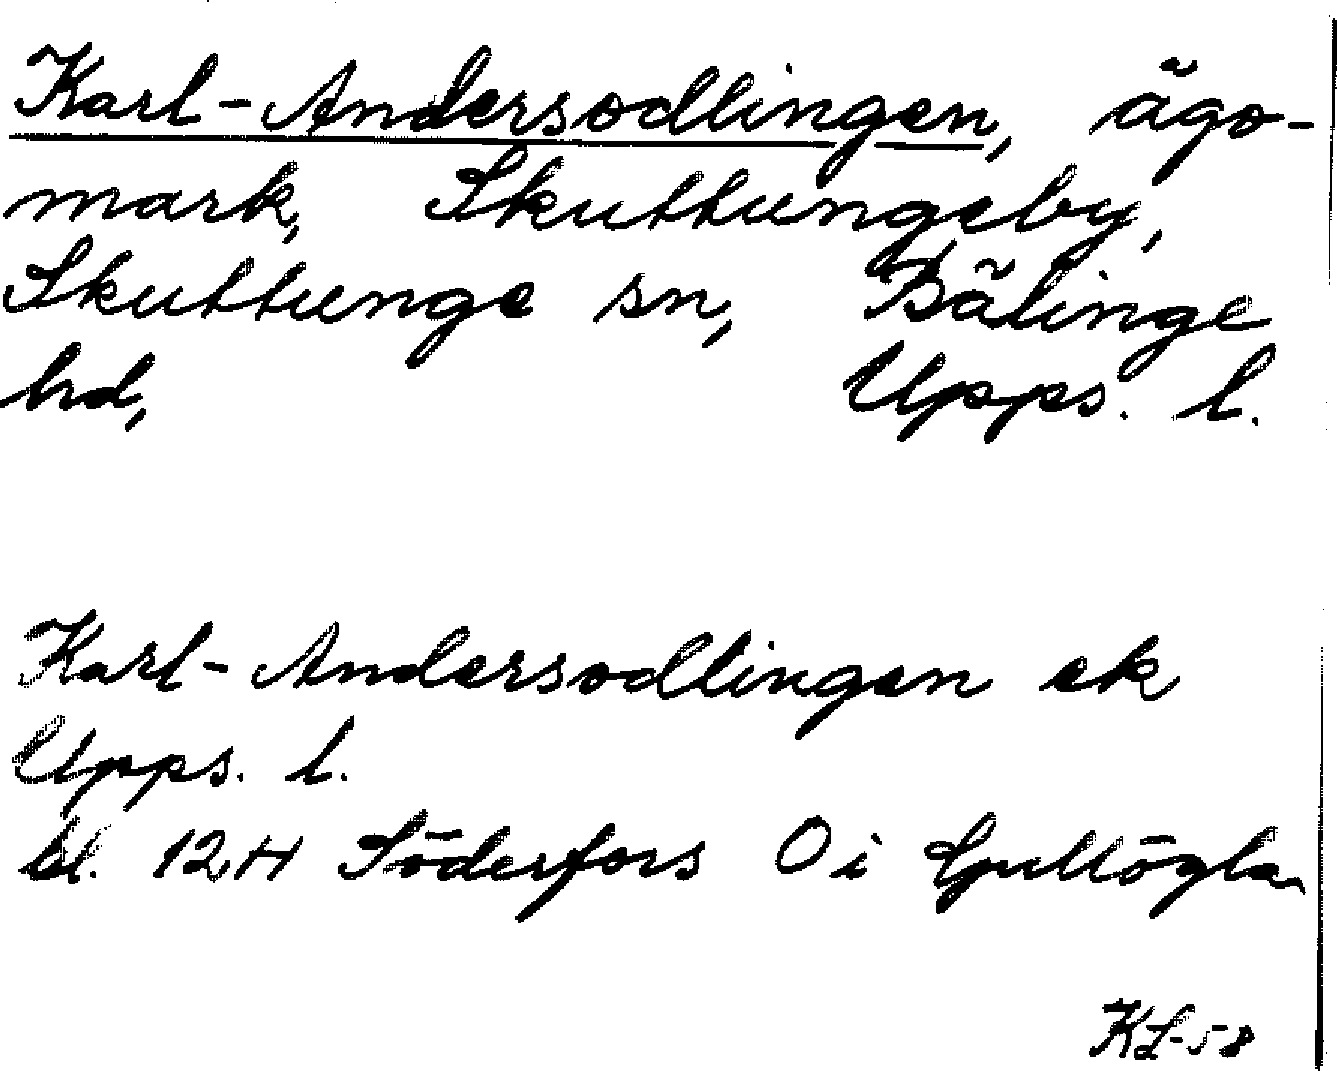 Karl-Andersodlingen, ägo-
mark, Skuttungeby,
Skuttunge sn, Bälinge
hd, Upps. l.
Karl-Andersodlingen ek
Upps. l.
bl. 12H Söderfors O i Gullögla
KL-58